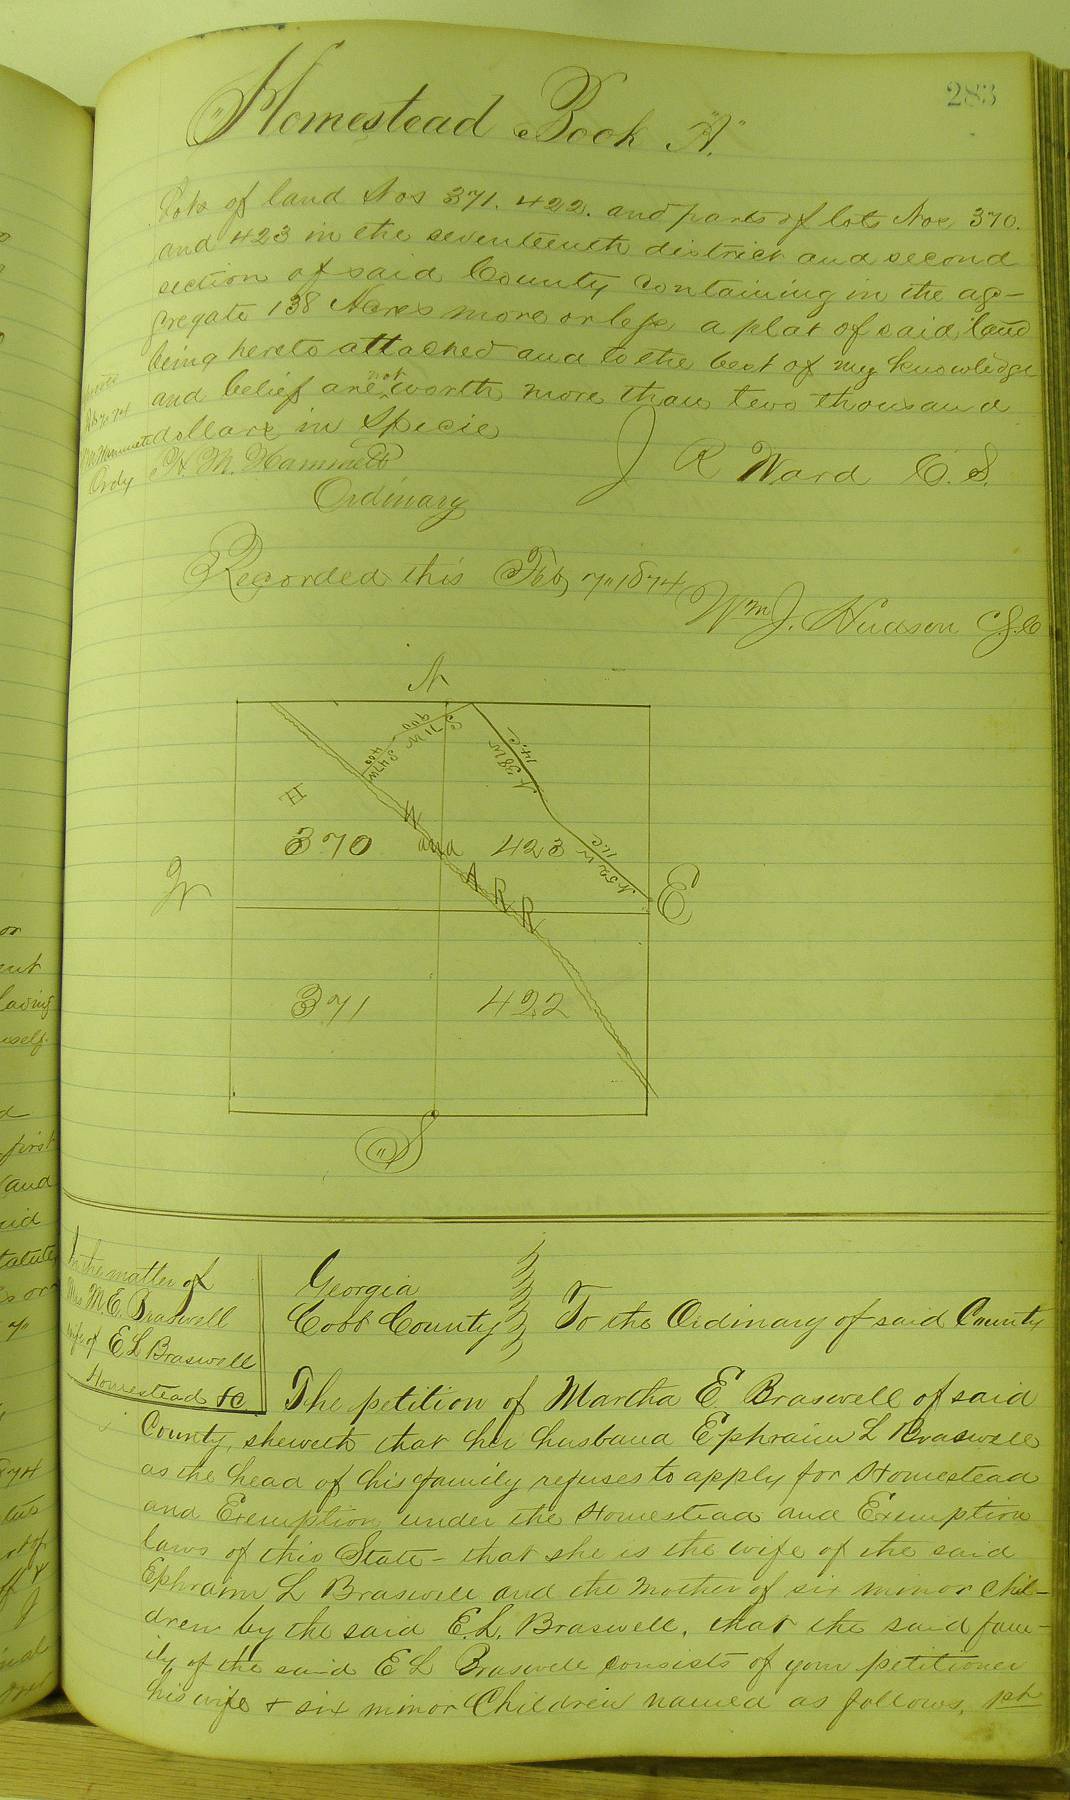 283
"Homestead Book "A."
Lots of land Nos 371. 422. and parts of lots Nos 370.
and 423 in the seventeenth district and second
section of said County containing in the ag-
gregate 138 Acres more or less a plat of said land
being hereto attached and to the best of my knowledge
and belief are not worth more than two thousand
dollars in Specie
J R Ward C. S.
H. M. Hammett
Ordinary
Hammett
Ordy
Recorded this Feby 7" 1874
Wm J. Hudson C.S.C
N
370
and
423
A R R
W
E
371
422
S
In the matter of
Mrs M. E. Braswell
wife of E L Braswell
Homestead &c
Georgia
Cobb County
To the Ordinary of said County
The petition of Martha E Braswell of said
County, sheweth that her husband Ephraim L Braswell
as the head of his family refuses to apply for Homestead
and Exemption under the Homestead and Exemption
laws of this State - that she is the wife of the said
Ephraim L Braswell and the Mother of six minor chil-
dren by the said E. L. Braswell, that the said fam-
ily of the said E L Braswell consists of your petitioner
his wife & six minor Children named as follows, 1st